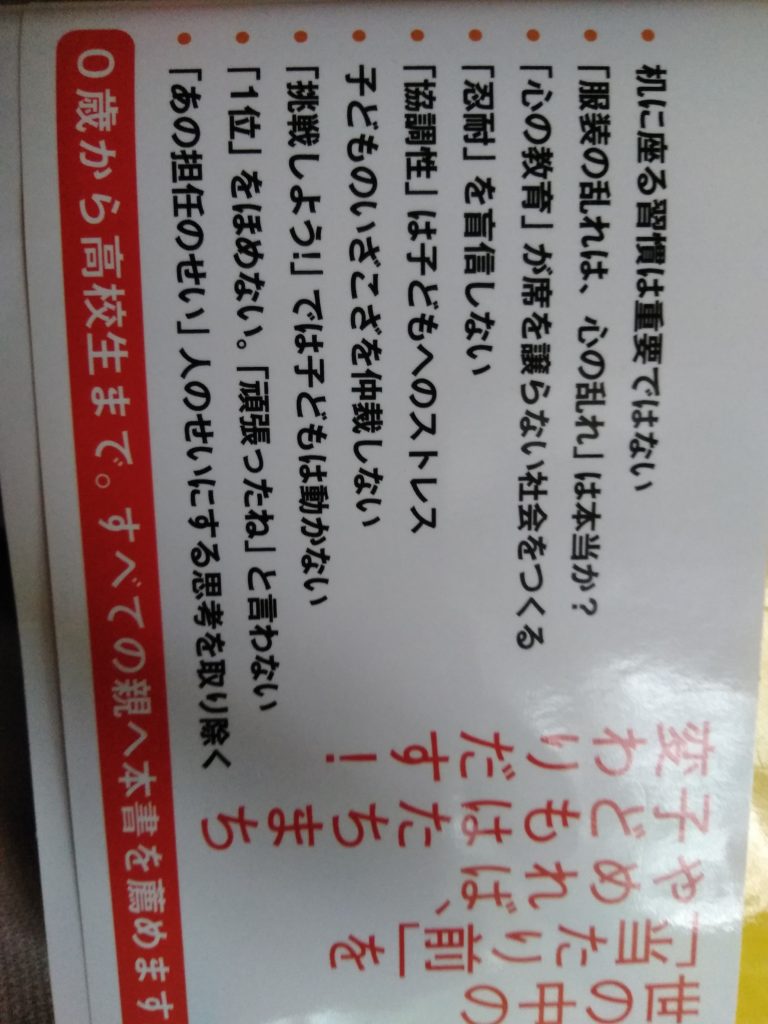 世の中の
「当たり前」を
やめれば、
子どもはたちまち
変わりだす!
• 机に座る習慣は重要ではない
• 「服装の乱れは、心の乱れ」は本当か?
• 「心の教育」が席を譲らない社会をつくる
• 「忍耐」を盲信しない
• 「協調性」は子どもへのストレス
• 子どものいざこざを仲裁しない
• 「挑戦しよう!」では子どもは動かない
• 「1位」をほめない。「頑張ったね」と言わない
• 「あの担任のせい」人のせいにする思考を取り除く
0歳から高校生まで。すべての親へ本書を薦めます